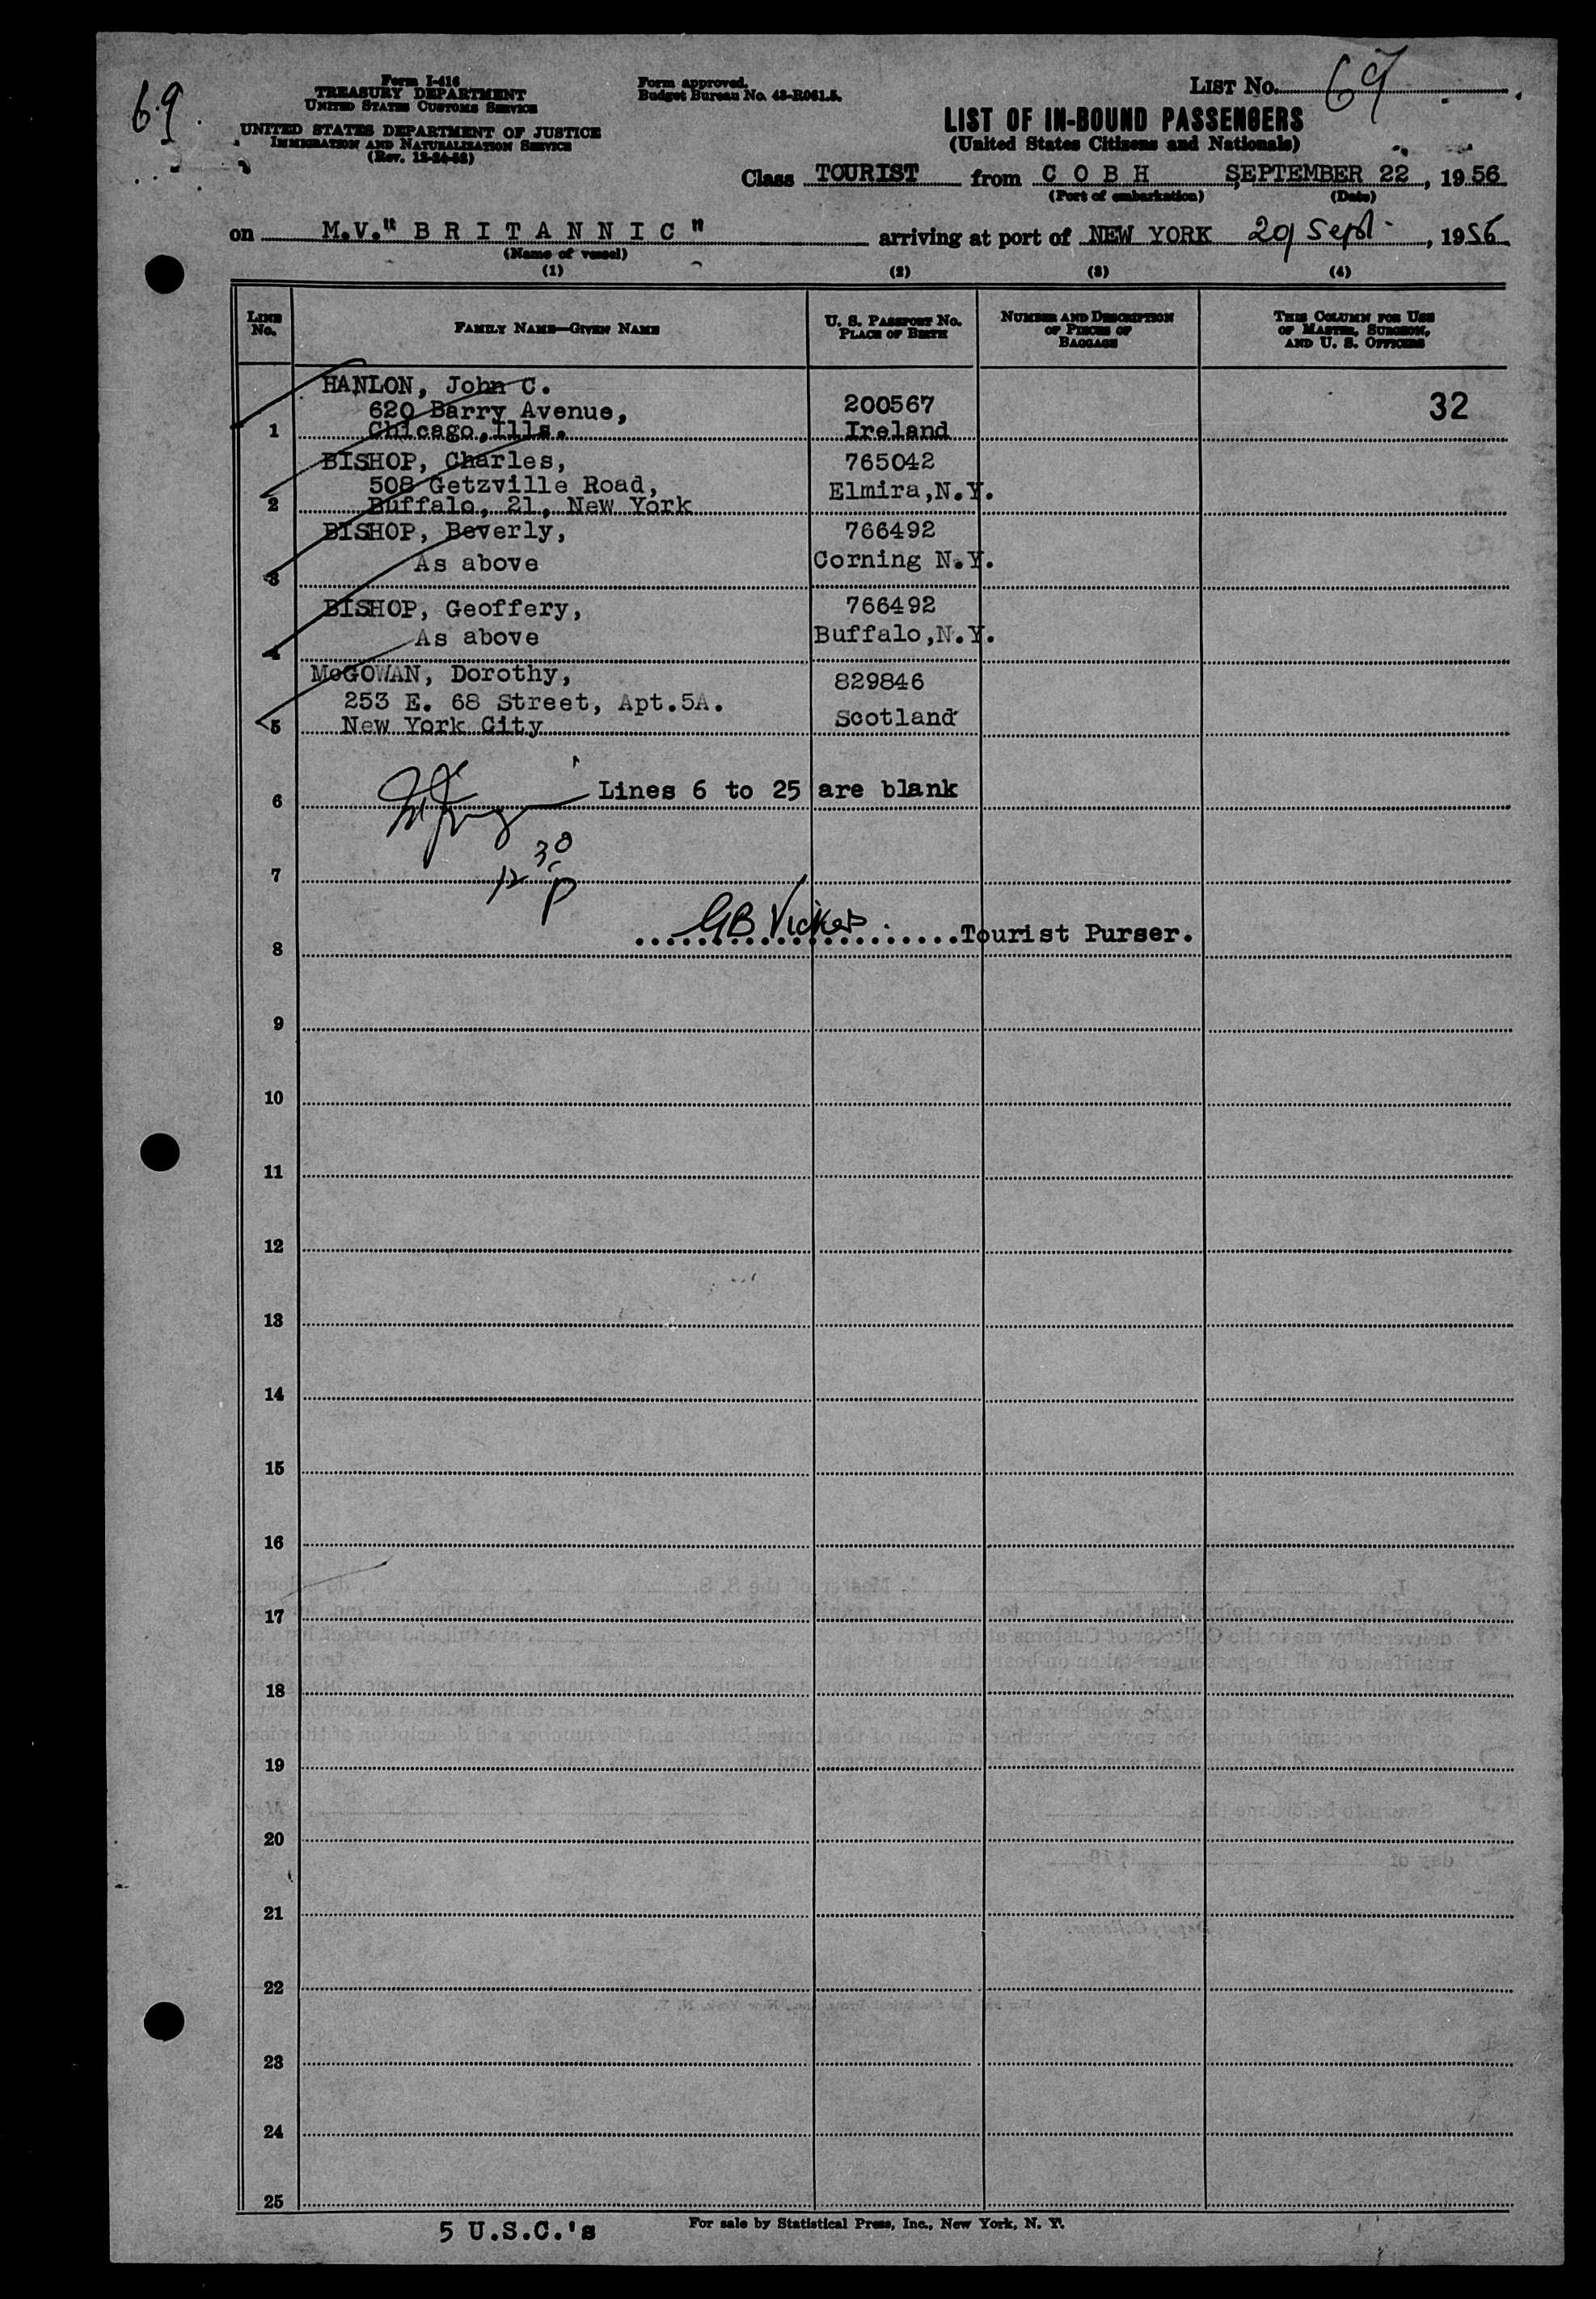 69.
Form I-416
TREASURY DEPARTMENT
UNITED STATES CUSTOMS SERVICE
UNITED STATES DEPARTMENT OF JUSTICE
IMMIGRATION AND NATURALIZATION SERVICE
(Rev. 12-24-52)
Form approved.
Budget Bureau No. 43-R061.5.
LIST No. 69
LIST OF IN-BOUND PASSENGERS
(United States Citizens and Nationals)
Class TOURIST from C O B H SEPTEMBER 22, 1956
(Port of embarkation) (Date)
on M.V." B R I T A N N I C " arriving at port of NEW YORK 29 Sept. 1956
(Name of vessel)
(1) (2) (3) (4)
LINE No. FAMILY NAME—GIVEN NAME U. S. PASSPORT No. PLACE OF BIRTH NUMBER AND DESCRIPTION OF PIECES OF BAGGAGE THIS COLUMN FOR USE OF MASTER, SURGEON, AND U. S. OFFICERS
HANLON, John C.
620 Barry Avenue, 200567 32
1 Chicago, Ills. Ireland
BISHOP, Charles, 765042
508 Getzville Road, Elmira, N.Y.
2 Buffalo, 21, New York
BISHOP, Beverly, 766492
As above Corning N.Y.
3
BISHOP, Geoffery, 766492
As above Buffalo, N.Y.
4
McGOWAN, Dorothy, 829846
253 E. 68 Street, Apt.5A.
5 New York City Scotland
6 Lines 6 to 25 are blank
12 30 p
7
GB Vickers Tourist Purser.
8
9
10
11
12
13
14
15
16
17
18
19
20
21
22
23
24
25
5 U.S.C.'s For sale by Statistical Press, Inc., New York, N. Y.